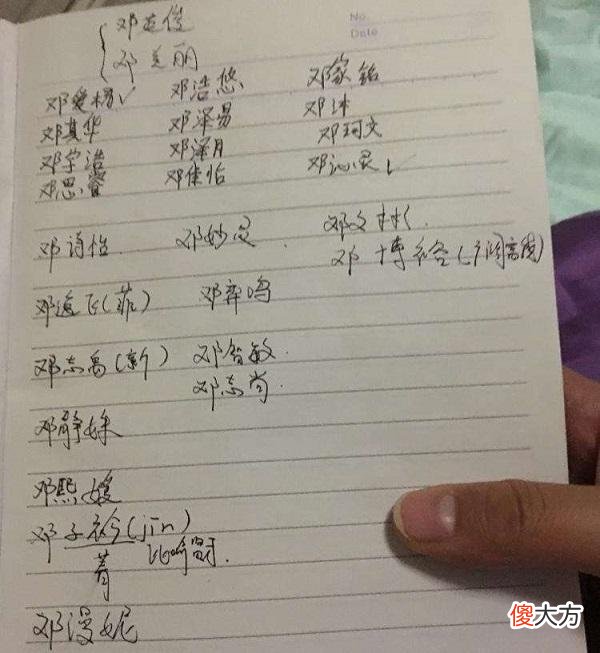 No.
Date
邓英俊
邓美丽
邓爱楊✓ 邓浩悠 邓家銘
邓其华 邓深易 邓沐
邓宇浩 邓泽月 邓珂文
邓思睿 邓佳怡 邓沁灵✓
邓诗怡. 邓妙灵. 邓文彬.
邓博
邓逸飞(菲) 邓弈鸣
邓志禹(新) 邓智敏.
邓志尚.
邓静姝
邓熙媛
邓子衿(jīn)
菁
邓漫妮
傻大方